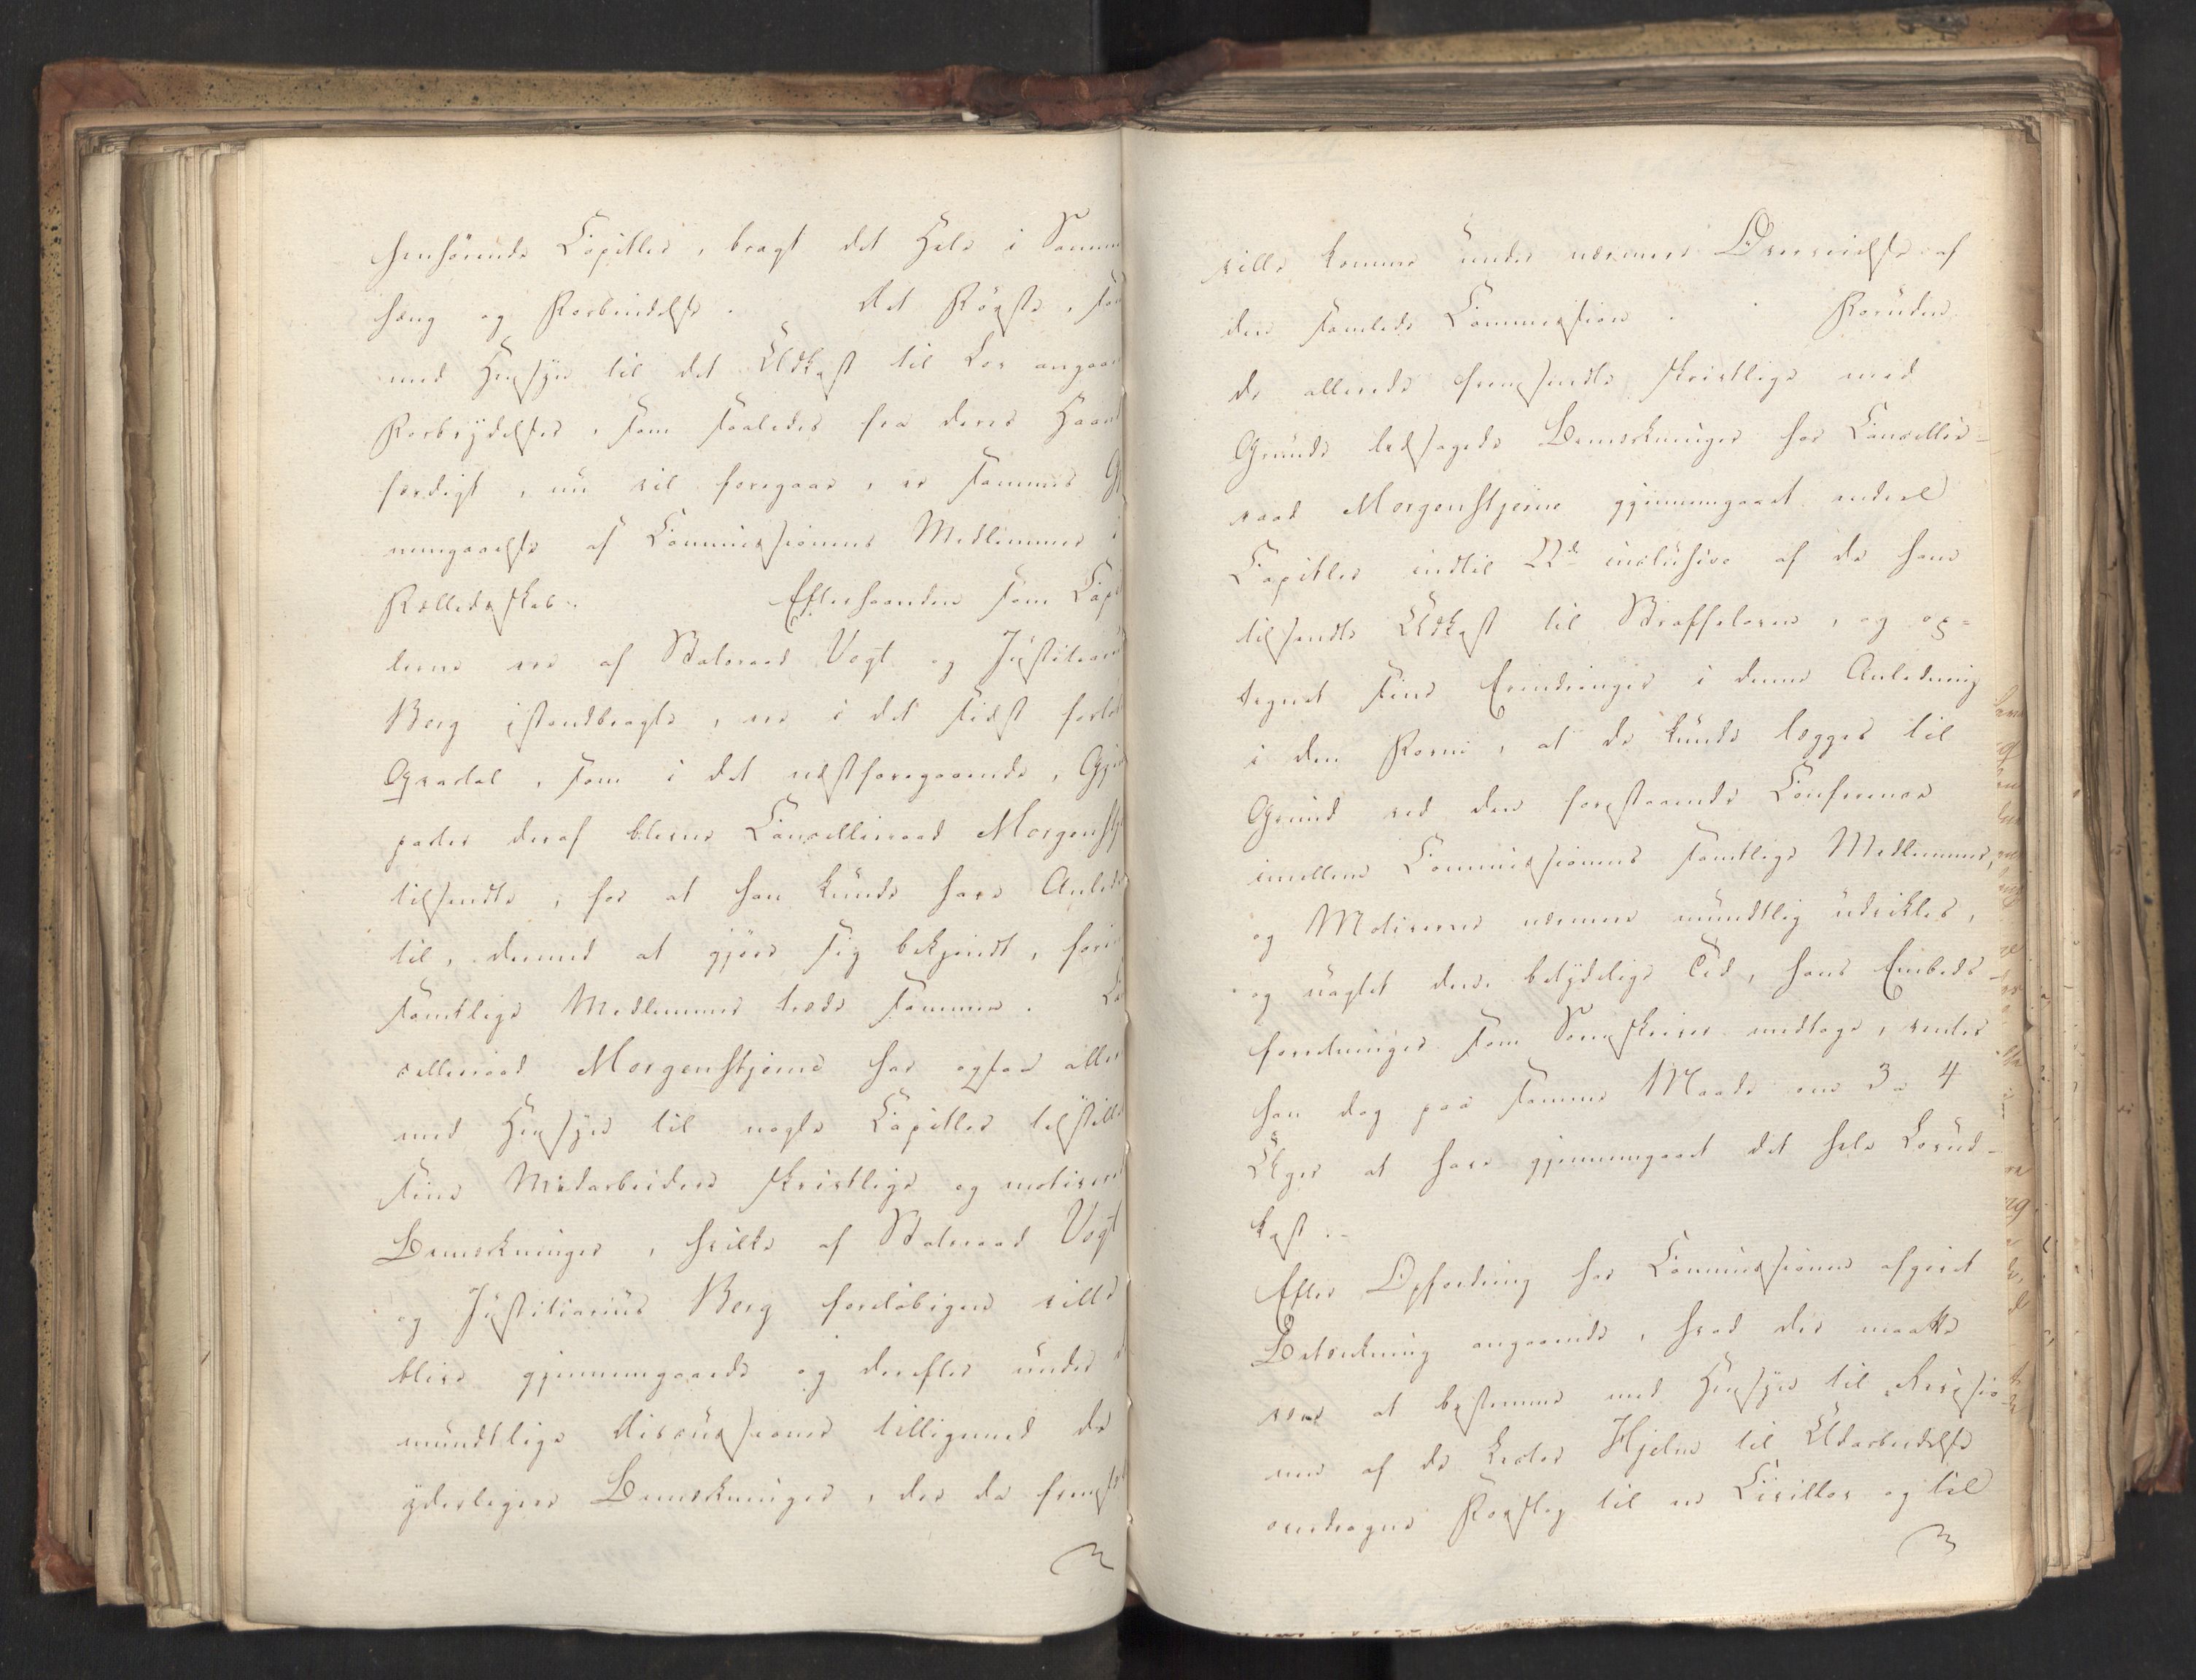 henhørende Capitler, bragt det Hele i Samm
hæng og Forbindelse. Det Første, som
med Hensyn til det Udkast til Lov angaae
Forbrydelser, som saaledes fra deres Haand
færdigt, nu vil foregaae, er sammes Gj
nemgaaelse af Commissionens Medlemmer i
Fælledsskab. Efterhaanden som Capit
lerne ere af Statsraad Vogt og Justitiari
Berg istandbragte, ere i det sidst forløb
Qvartal, som i det næstforegaaende, Gjen
parter deraf blevne Cancelliraad Morgenstje
tilsendte, for at han kunde have Anled
til, dermed at gjøre sig bekjendt, forin
samtlige Medlemmer træde sammen. Can
celliraad Morgenstjerne har ogsaa aller
med Hensyn til nogle Capitler tilstillet
sine Medarbeidere skrivtlige og motivere
Bemærkninger, hvilke af Statsraad Vogt
og Justitiarius Berg foreløbigen ville
blive gjennemgaaede og derefter under d
mundtlige Discussioner tilligemed de
yderligere Bemærkninger, der da fremst
ville komme under nærmere Overveielse af
den samlede Commission. Foruden
de allerede fremsendte skrivtlige med
Grunde ledsagede Bemærkninger har Cancellie-
raad Morgenstjerne gjennemgaaet endeel
Capitler indtil 22de inclusive af de ham
tilsendte Udkast til Straffeloven, og op=
tegnet sine Erindringer i denne Anledning
i den Form, at de kunde lægges til
Grund ved den forestaaende Conference
imellem Commissionens samtlige Medlemmer,
og Motiverne nærmere mundtlig udvikles,
og uagtet den betydelige Tid, hans Embeds-
forretninger som Sorenskriver medtage, venter
han dog paa samme Maade om 3 a 4
Uger at have gjennemgaaet det hele Lovud-
kast.-
Efter Opfordring har Commissionen afgivet
Betænkning angaaende, hvad der maatte
være at bestemme med Hensyn til Revisio
nen af de Lector Hjelm til Udarbeidelse
overdragne Forslag til en Civillov og til